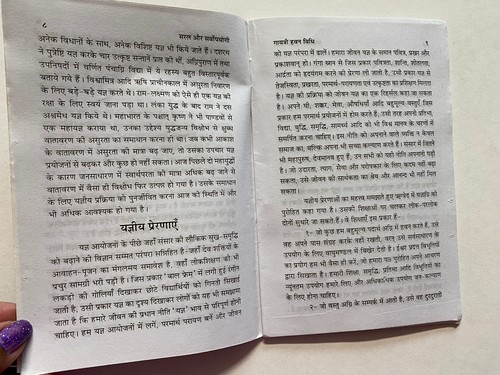 ८ सरल और सर्वोपयोगी
अनेक विधानों के साथ, अनेक विशिष्ट यज्ञ भी किये जाते हैं। दशरथ
ने पुत्रेष्टि यज्ञ करके चार उत्कृष्ट सन्तानें प्राप्त की थीं, अग्निपुराण में तथा
उपनिषदों में वर्णित पंचाग्नि विद्या में ये रहस्य बहुत विस्तारपूर्वक
बताये गये हैं। विश्वामित्र आदि ऋषि प्राचीनकाल में असुरता निवारण
के लिए बड़े-बड़े यज्ञ करते थे। राम-लक्ष्मण को ऐसे ही एक यज्ञ की
रक्षा के लिए स्वयं जाना पड़ा था। लंका युद्ध के बाद राम ने दस
अश्वमेध यज्ञ किये थे। महाभारत के पश्चात् कृष्ण ने भी पाण्डवों से
एक महायज्ञ कराया था, उनका उद्देश्य युद्धजन्य विक्षोभ से क्षुब्ध
वातावरण की असुरता का समाधान करना ही था। जब कभी आकाश
के वातावरण में असुरता की मात्रा बढ़ जाए, तो उसका उपचार यज्ञ
प्रयोजनों से बढ़कर और कुछ हो नहीं सकता। आज पिछले दो महायुद्धों
के कारण जनसाधारण में स्वार्थपरता की मात्रा अधिक बढ़ जाने से
वातावरण में वैसा ही विक्षोभ फिर उत्पन्न हो गया है। उसके समाधान
के लिए यज्ञीय प्रक्रिया को पुनर्जीवित करना आज की स्थिति में और
भी अधिक आवश्यक हो गया है।
यज्ञीय प्रेरणाएँ
यज्ञ आयोजनों के पीछे जहाँ संसार की लौकिक सुख-समृद्धि
को बढ़ाने की विज्ञान सम्मत परंपरा सन्निहित है-जहाँ देव शक्तियों के
आवाहन-पूजन का मंगलमय समावेश है, वहाँ लोकशिक्षण की भी
प्रचुर सामग्री भरी पड़ी है। जिस प्रकार 'बाल फ्रेम' में लगी हुई रंगीन
लकड़ी की गोलियाँ दिखाकर छोटे विद्यार्थियों को गिनती सिखाई
जाती है, उसी प्रकार यज्ञ का दृश्य दिखाकर लोगों को यह भी समझाया
जाता है कि हमारे जीवन की प्रधान नीति 'यज्ञ' भाव से परिपूर्ण होनी
चाहिए। हम यज्ञ आयोजनों में लगें, परमार्थ परायण बनें और जीवन
गायत्री हवन विधि ९
को यज्ञ परंपरा में ढालें। हमारा जीवन यज्ञ के समान पवित्र, प्रखर और
प्रकाशवान् हो। गंगा स्नान से जिस प्रकार पवित्रता, शान्ति, शीतलता,
आर्द्रता को हृदयंगम करने की प्रेरणा ली जाती है, उसी प्रकार यज्ञ से
तेजस्विता, प्रखरता, परमार्थ-परायणता एवं उत्कृष्टता का प्रशिक्षण मिलता
है। यज्ञ की प्रक्रिया को जीवन यज्ञ का एक रिहर्सल कहा जा सकता
है। अपने घी, शक्कर, मेवा, औषधियाँ आदि बहुमूल्य वस्तुएँ जिस
प्रकार हम परमार्थ प्रयोजनों में होम करते हैं; उसी तरह अपनी प्रतिभा,
विद्या, बुद्धि, समृद्धि, सामर्थ्य आदि को भी विश्व मानव के चरणों में
समर्पित करना चाहिए। इस नीति को अपनाने वाले व्यक्ति न केवल
समाज का, बल्कि अपना भी सच्चा कल्याण करते हैं। संसार में जितने
भी महापुरुष, देवमानव हुए हैं, उन सभी को यही नीति अपनानी पड़ी
है। जो उदारता, त्याग, सेवा और परोपकार के लिए कदम नहीं बढ़ा
सकता, उसे जीवन की सार्थकता का श्रेय और आनन्द भी नहीं मिल
सकता।
यज्ञीय प्रेरणाओं का महत्त्व समझाते हुए ऋग्वेद में यज्ञाग्नि को
पुरोहित कहा गया है। उसकी शिक्षाओं पर चलकर लोक-परलोक
दोनों सुधारे जा सकते हैं। वे शिक्षाएँ इस प्रकार हैं-
१- जो कुछ हम बहुमूल्य पदार्थ अग्नि में हवन करते हैं, उसे
वह अपने पास संग्रह करके नहीं रखती, वरन् उसे सर्वसाधारण के
उपयोग के लिए वायुमण्डल में बिखेर देती है। ईश्वर प्रदत्त विभूतियों
का प्रयोग हम भी वैसा ही करें, जो हमारा यज्ञ पुरोहित अपने आचरण
द्वारा सिखाता है। हमारी शिक्षा, समृद्धि, प्रतिभा आदि विभूतियों का
न्यूनतम उपयोग हमारे लिए और अधिकाधिक उपयोग जन-कल्याण
के लिए होना चाहिए।
२- जो वस्तु अग्नि के सम्पर्क में आती है, उसे वह दुरदुराती